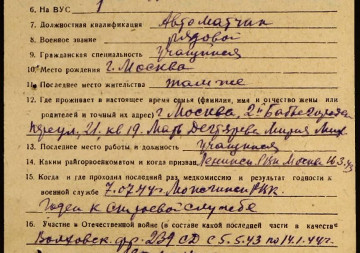 6. На ВУС 1
7. Должностная квалификация Автоматчик
8. Воинское звание рядовой
9. Гражданская специальность учащийся
10. Место рождения г. Москва
11. Последнее место жительства там же
12. Где проживает в настоящее время семья (фамилия, имя и отчество жены или
родителей и точный их адрес) г. Москва, 2й
переул, 21. кв 19. Мать Дегтярева Мария Мих.
13. Последнее место работы и должность учащийся
14. Каким райгорвоенкоматом и когда призван Ленинск. РВК Москва 16.3.43
15. Когда и где проходил последний раз медкомиссию и результат годности к
военной службе 7.07.44 г РВК.
Годен к строевой службе
16. Участие в Отечественной войне (в составе какой последней части в качестве
Волховск. фр. 239 СД с 5.5.43 по 14.1.44 г.